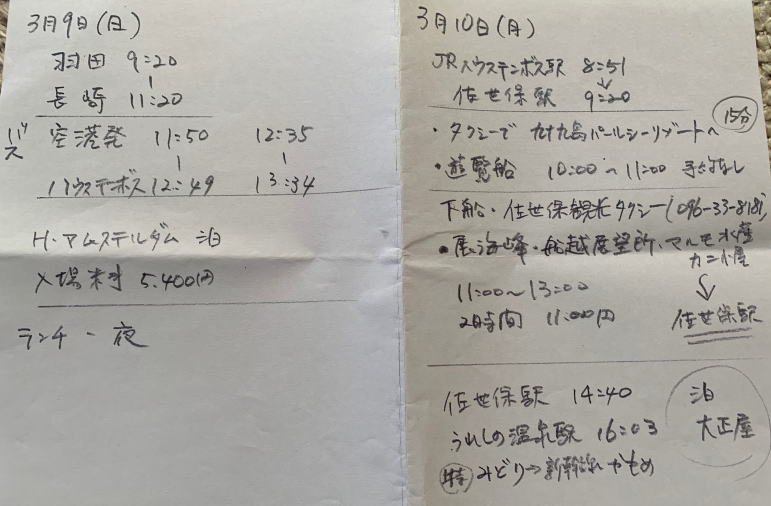 3月9日(日)
羽田 9:20
長崎 11:20
バス 空港発 11:50 12:35
ハウステンボス 12:49 13:34
H・アムステルダム 泊
入場料 5.400円
ランチ - 夜
3月10日(月)
JRハウステンボス駅 8:51
↓
佐世保駅 9:20
・タクシーで 九十九島パールシーリゾートへ 15分
・遊覧船 10:00~11:00 予約なし
下船・佐世保観光タクシー
・展海峰・船越展望所・マルモ水産
カキ小屋
11:00~13:00
↓
2時間 11:000円 佐世保駅
佐世保駅 14:40
うれしの温泉駅 16:03
特 みどり→新幹線かもめ
泊
大正屋